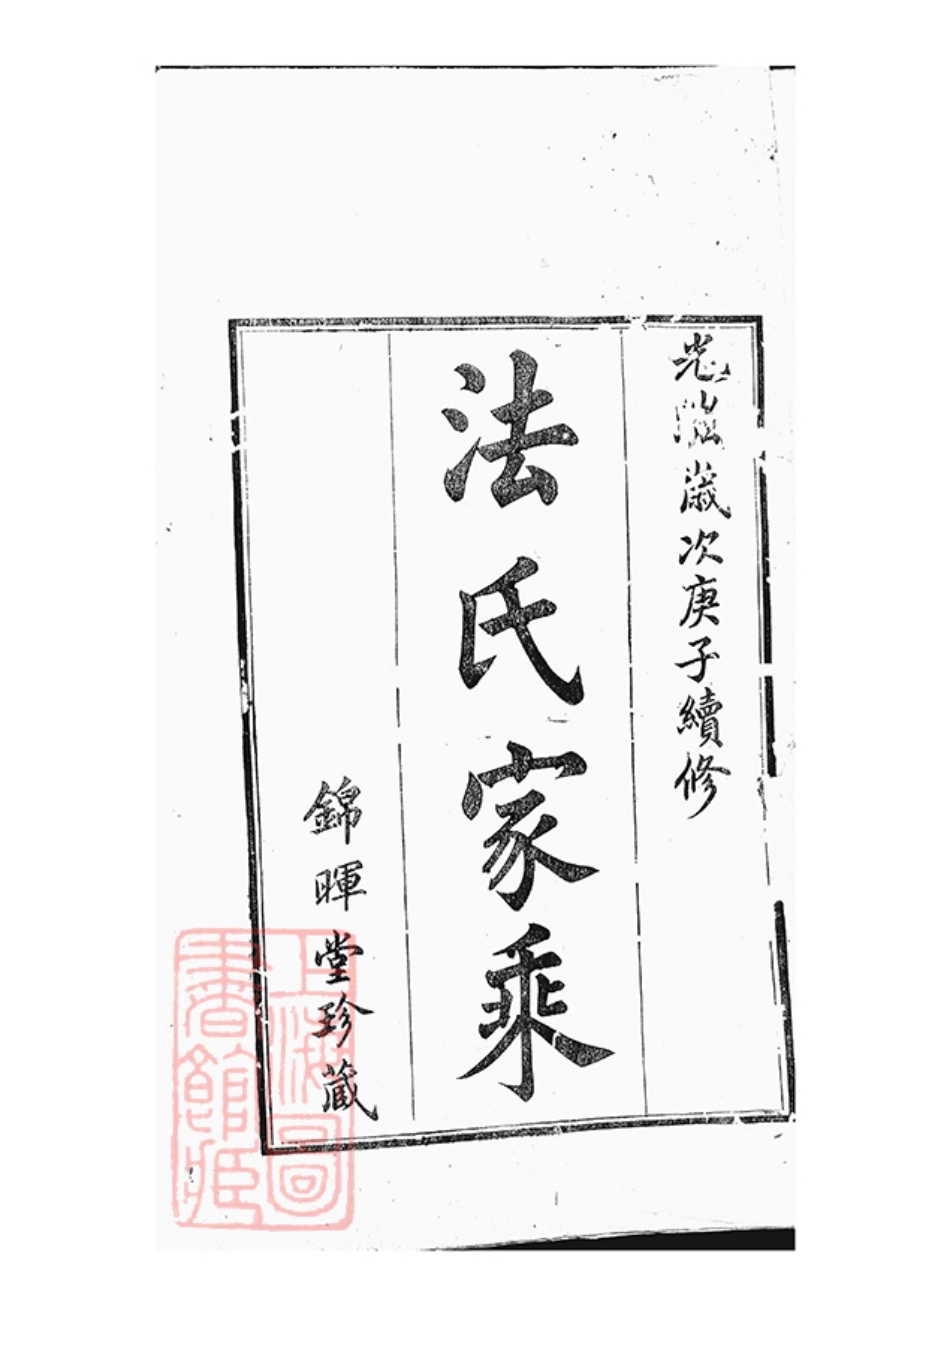 光緒歲次庚子續修
法氏家乘
錦暉堂珍蔵
上海圖
書館藏